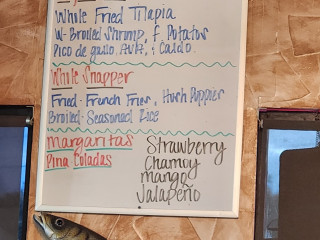 Whole Fried Tilapia
W- Broiled Shrimp, f. Potatos
Pico de gallo, Avk, & Caldo.
Whole Snapper
Fried - French Fries, Hush Puppies
Broiled - Seasoned Rice
Margaritas
Pina Coladas
Strawberry
Chamoy
mango
Jalapeño